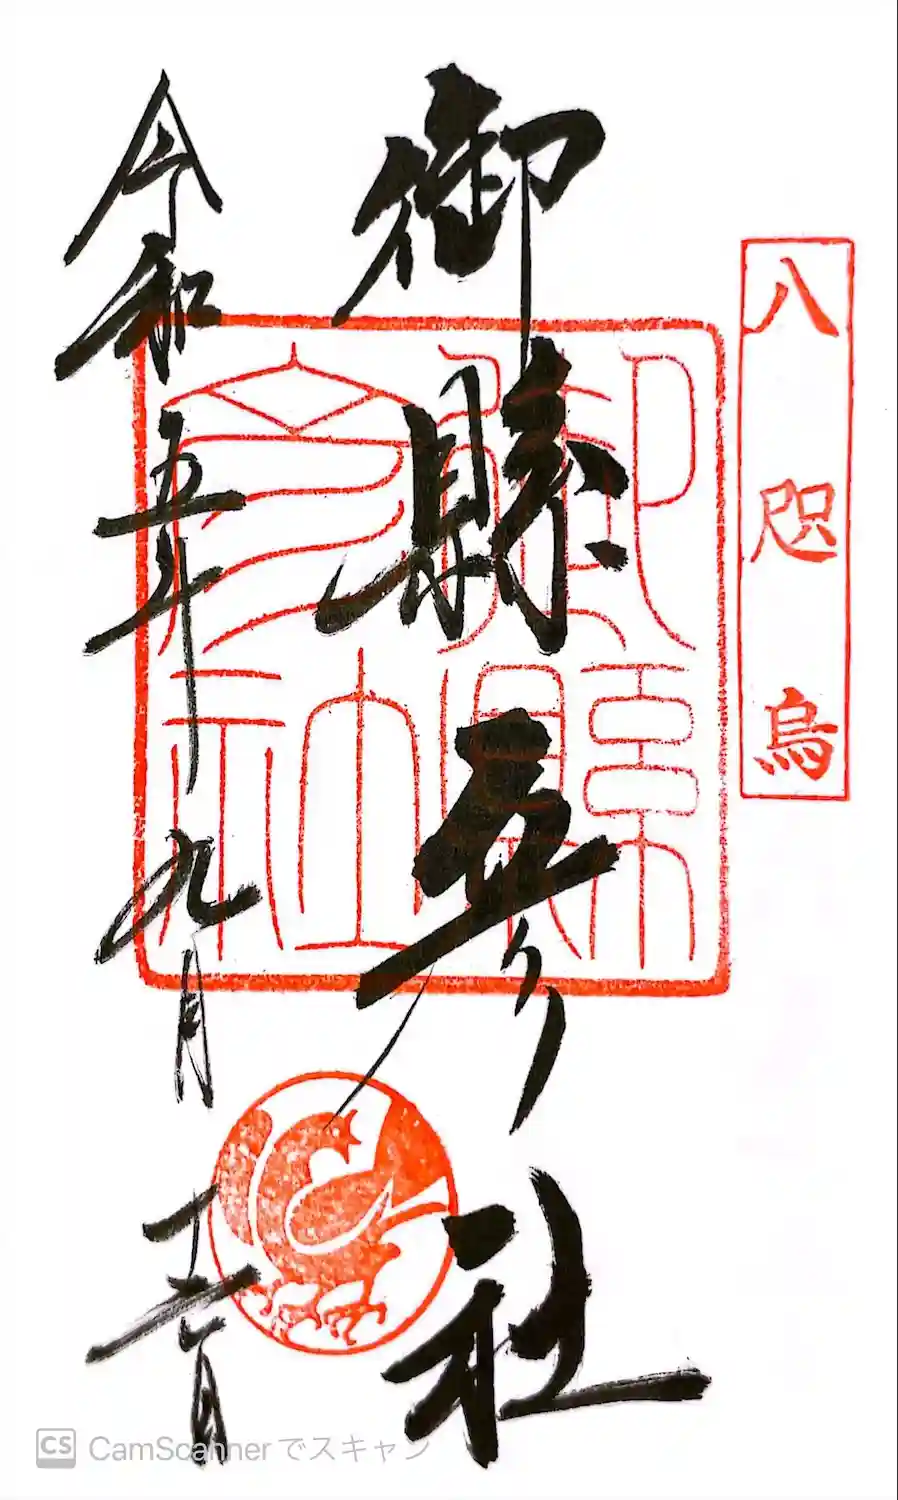 八咫烏
御縣彦社
御縣彦社
令和五年九月十 日
CS CamScannerでスキャン